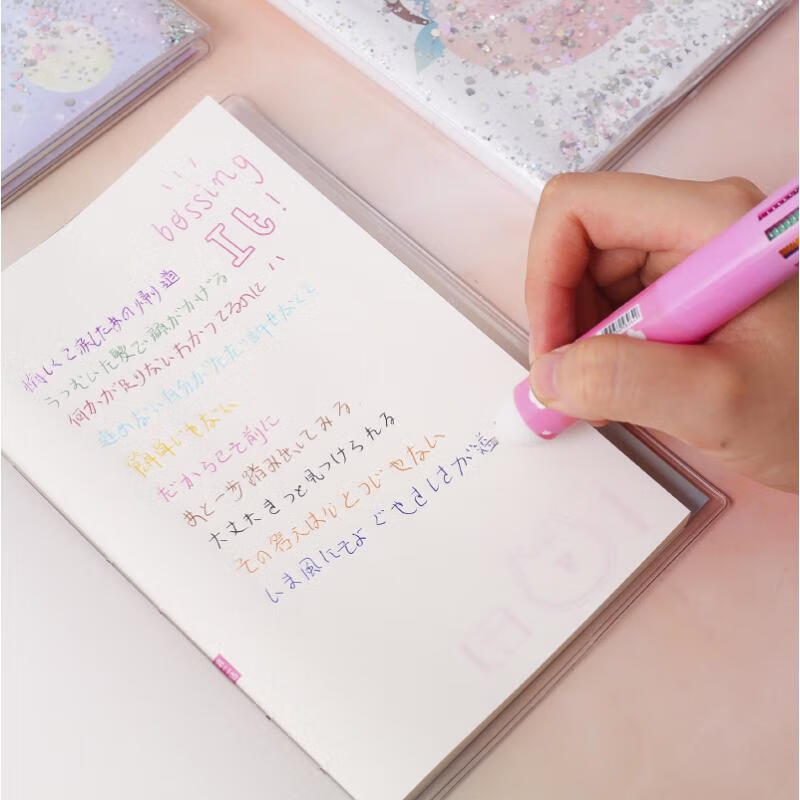 bossing
It!
悔しくて流したあの帰り道
うつむいた髪で顔がかげる
何かが足りないわかってるのに
進めない自分がただ許せなくて
簡単じゃない
だからこそ前に
あと一歩踏み出してみる.
大丈夫きっと見つけられる
その答えはひとつじゃない
いま風にそよぐやさしさが道